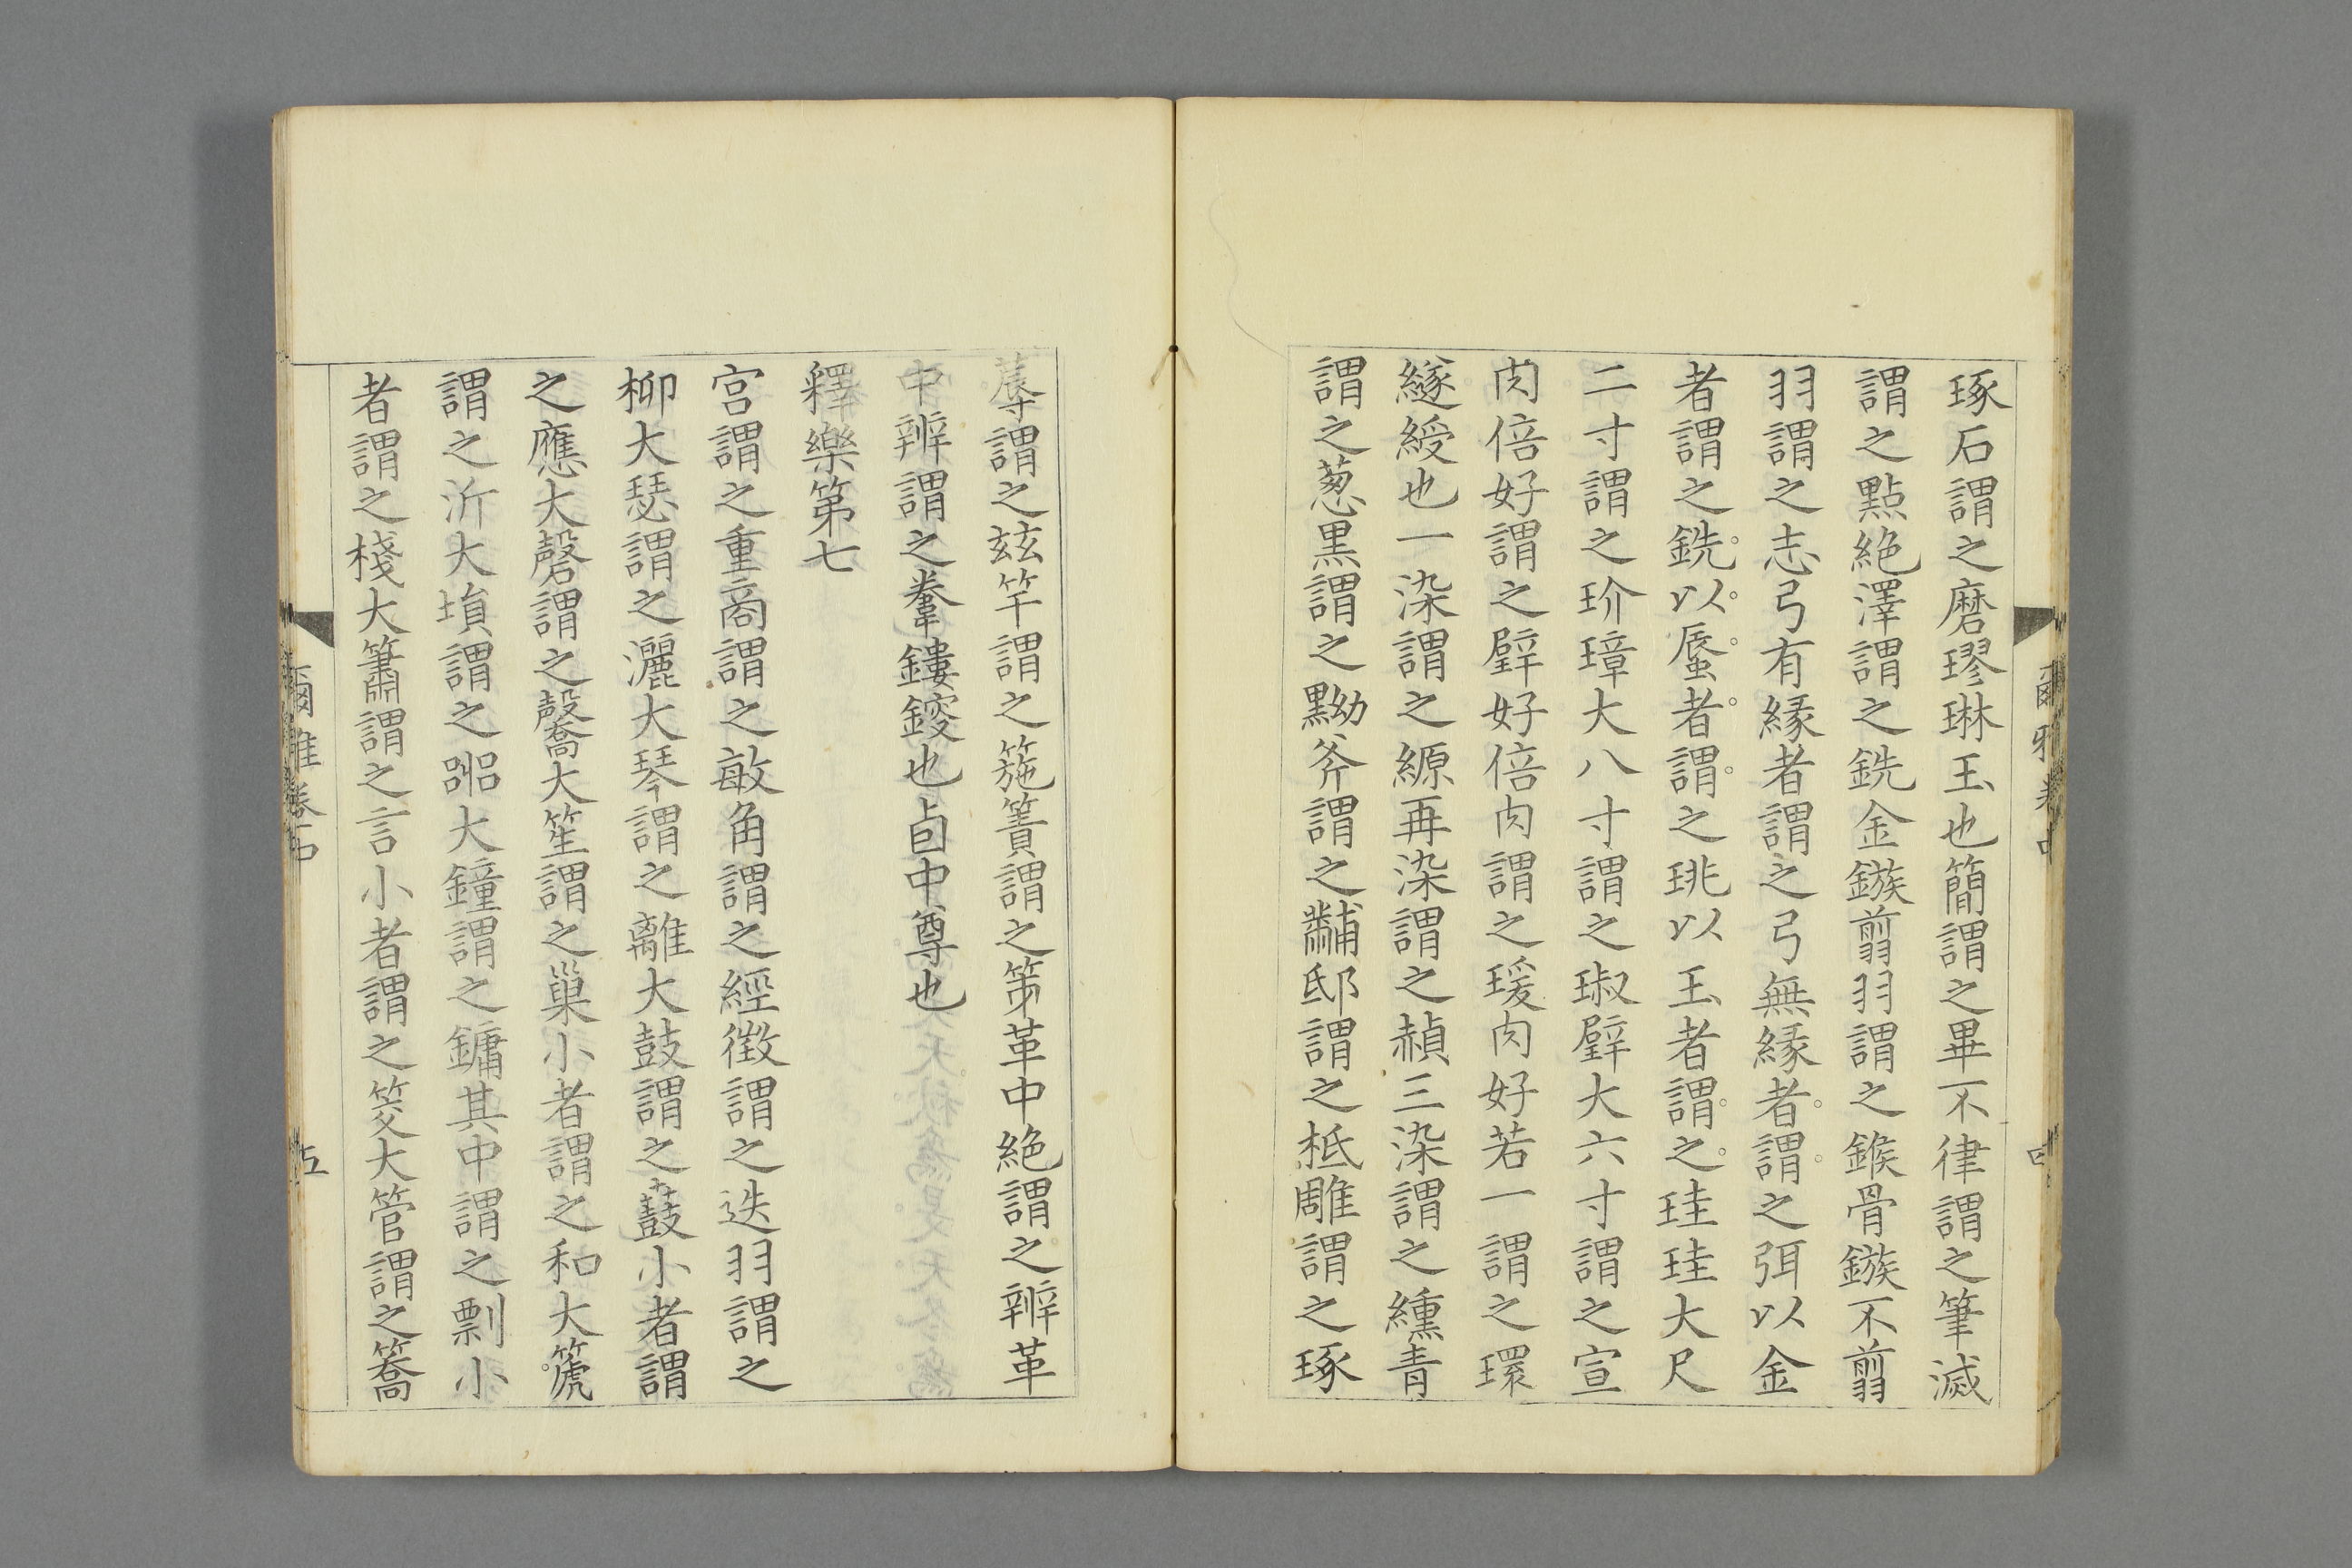 琢石謂之磨璆琳玉也簡謂之畢不律謂之筆滅
謂之點絶澤謂之銑金鏃翦羽謂之鍭骨鏃不翦
羽謂之志弓有縁者謂之弓無縁者謂之弭以金
者謂之銑以蜃者謂之珧以玉者謂之珪珪大尺
二寸謂之玠璋大八寸謂之琡璧大六寸謂之宣
肉倍好謂之璧好倍肉謂之瑗肉好若一謂之環
繸綬也一染謂之縓再染謂之赬三染謂之纁青
謂之葱黒謂之黝斧謂之黼邸謂之柢雕謂之琢
蓐謂之兹竿謂之箷簀謂之笫革中絶謂之辨革
中辨謂之韏鏤鎪也卣中尊也
釋樂第七
宫謂之重商謂之敏角謂之經徴謂之迭羽謂之
柳大瑟謂之灑大琴謂之離大鼓謂之鼖小者謂
之應大磬謂之毊大笙謂之巢小者謂之和大篪
謂之沂大塤謂之嘂大鐘謂之鏞其中謂之剽小
者謂之棧大簫謂之言小者謂之筊大管謂之簥
爾雅卷中
四
爾雅卷中
五